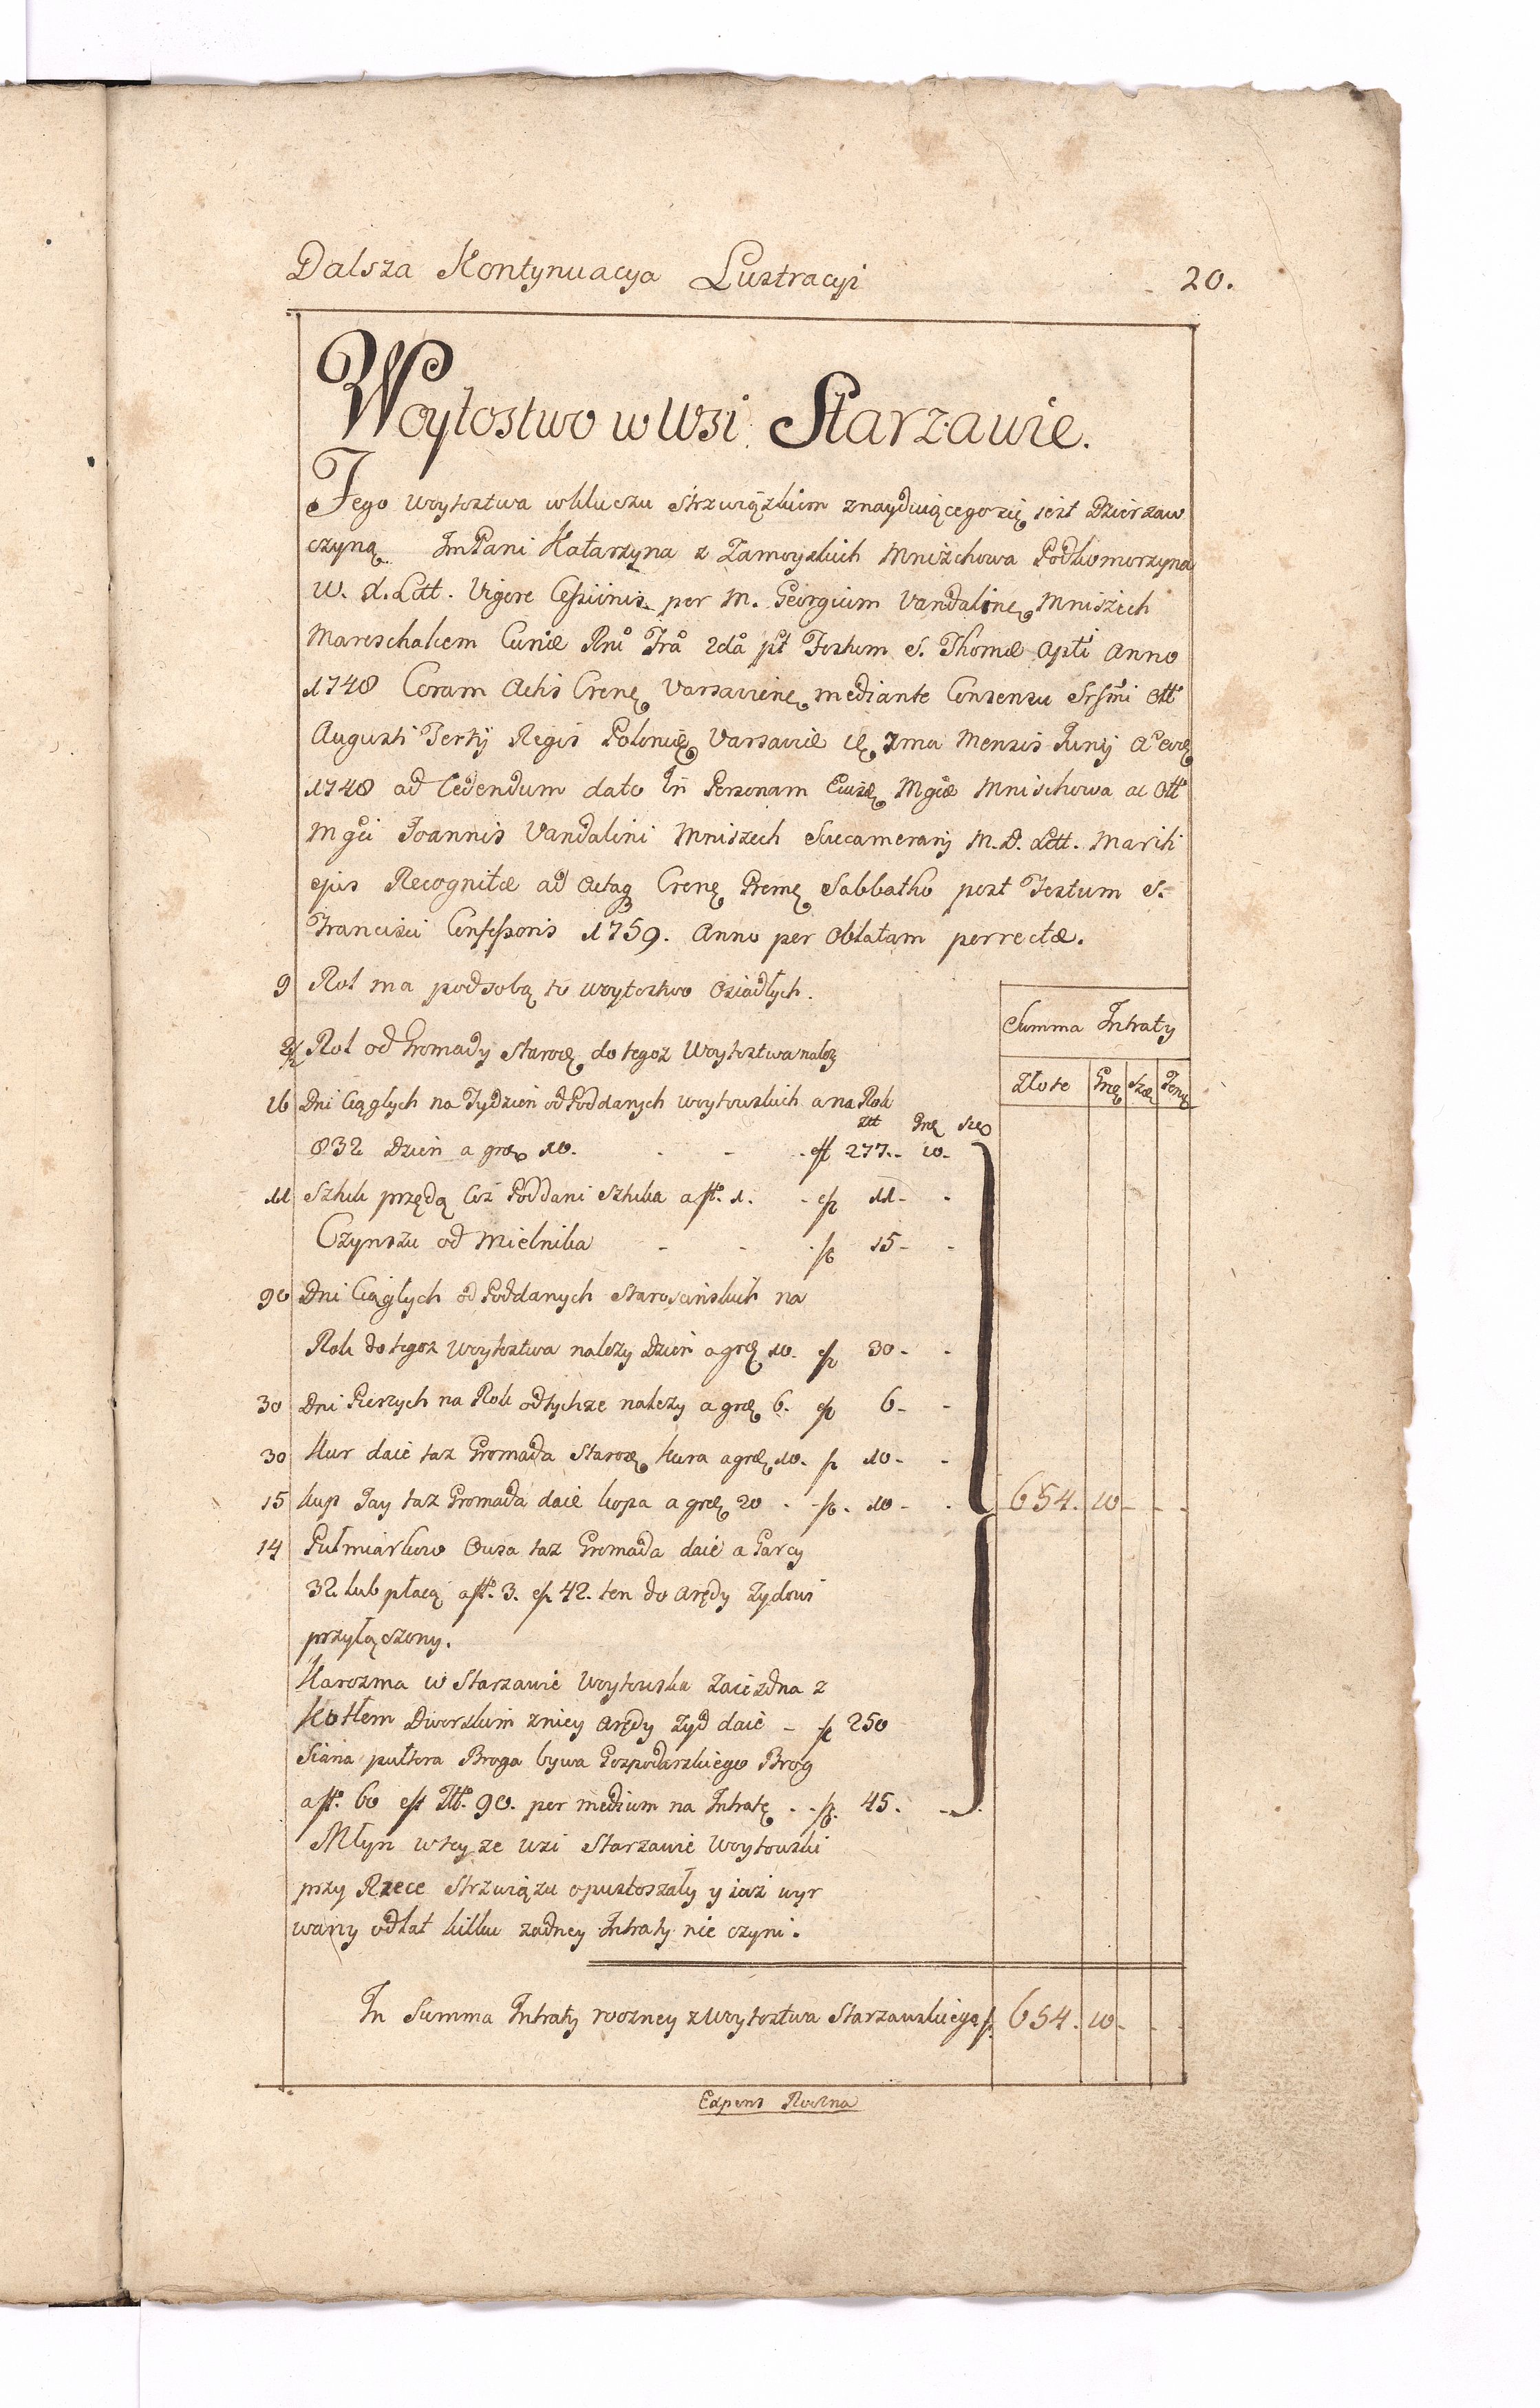 Dalsza Kontynuacya Lustracyi 20.
Woytostwo w Wsi Starzawie.
Tego woytostwa w kluczu Strzwiązkim znayduiącego się iest Dzierzaw
czyną Im Pani Katarzyna z Zamoyskich Mniszchowa Podkomorzyna
W. X. Litt. Vigore Cessionis per M. Georgium Vandalinę Mniszech
Mareschalcem Curiæ Rni Fra 2da pt Festum S. Thomæ Apti Anno
1748 Coram Actis Crenę Varsavienę mediante Consensu Srsmi Ott
Augusti Tertij Regis Polonię Varsaviæ 7ma Mensis Junij
1748 ad Cedendum dato In Personam Mgcæ Mnischowa ac Ott
Mgci Joannis Vandalini Mniszech Succamerarij M. D. Litt. Mariti
ejus Recognitæ ad Actaq Crenę Premę Sabbatho post Festum S.
Francisci Confessoris 1759. Anno per Oblatam perrectæ.
9 Rol ma pod sobą to woytostwo Osiadłych.
2/2 Rol od Gromady Staroę do tegoz Woytostwa należ
Summa Intraty
Złote Grę Szę Fenę
16 Dni Ciągłych na Tydzien od Poddanych woytowskich a na Rok
Ztt Grę Szę
832 Dzien a gros 10. - - eff 277.. 10-
11 Sztuk przędą Ciz Poddani Sztuka a ff. 1. - ef 11- -
Czynszu od Mielnika - - f 15- -
90 Dni Ciągłych od Poddanych Starościnskich na
Rok do tegoz Woytostwa nalezy Dzien a grę 10. ef 30- -
30 Dni Pieszych na Rok od tychze nalezy a grę 6. ef 6- -
30 Kur daie taz Gromada Staroę kura a grę 10. f 10- -
15 kup Jay taz Gromada daie kopa a grę 20 - f. 10 - - 654. 10 - - -
14 Pułmiarkow Owsa taz Gromada daie a Garcy
32 lub płacą a ff. 3. ef 42. ten do Arędy Zydowi
przyłączony.
Karczma w Starzawie Woytowska Zaiezdna z
Kotłem Dworskim z niey Arędy Zyd daie - f 250
Siana pułtora Broga bywa Gospodarskiego Brog
a ff. 60 ef Ztt. 90. per medium na Intratę - - f. 45. -
Młyn w teyze Wsi Starzawie Woytowski
przy Rzece Strzwiązu opustoszały y iasz wyr
wany od lat kilku zadney Intraty nie czyni.
In Summa Intraty roczney z Woytostwa Starzawskiego f. 654. 10 - - -
Expens Roczna